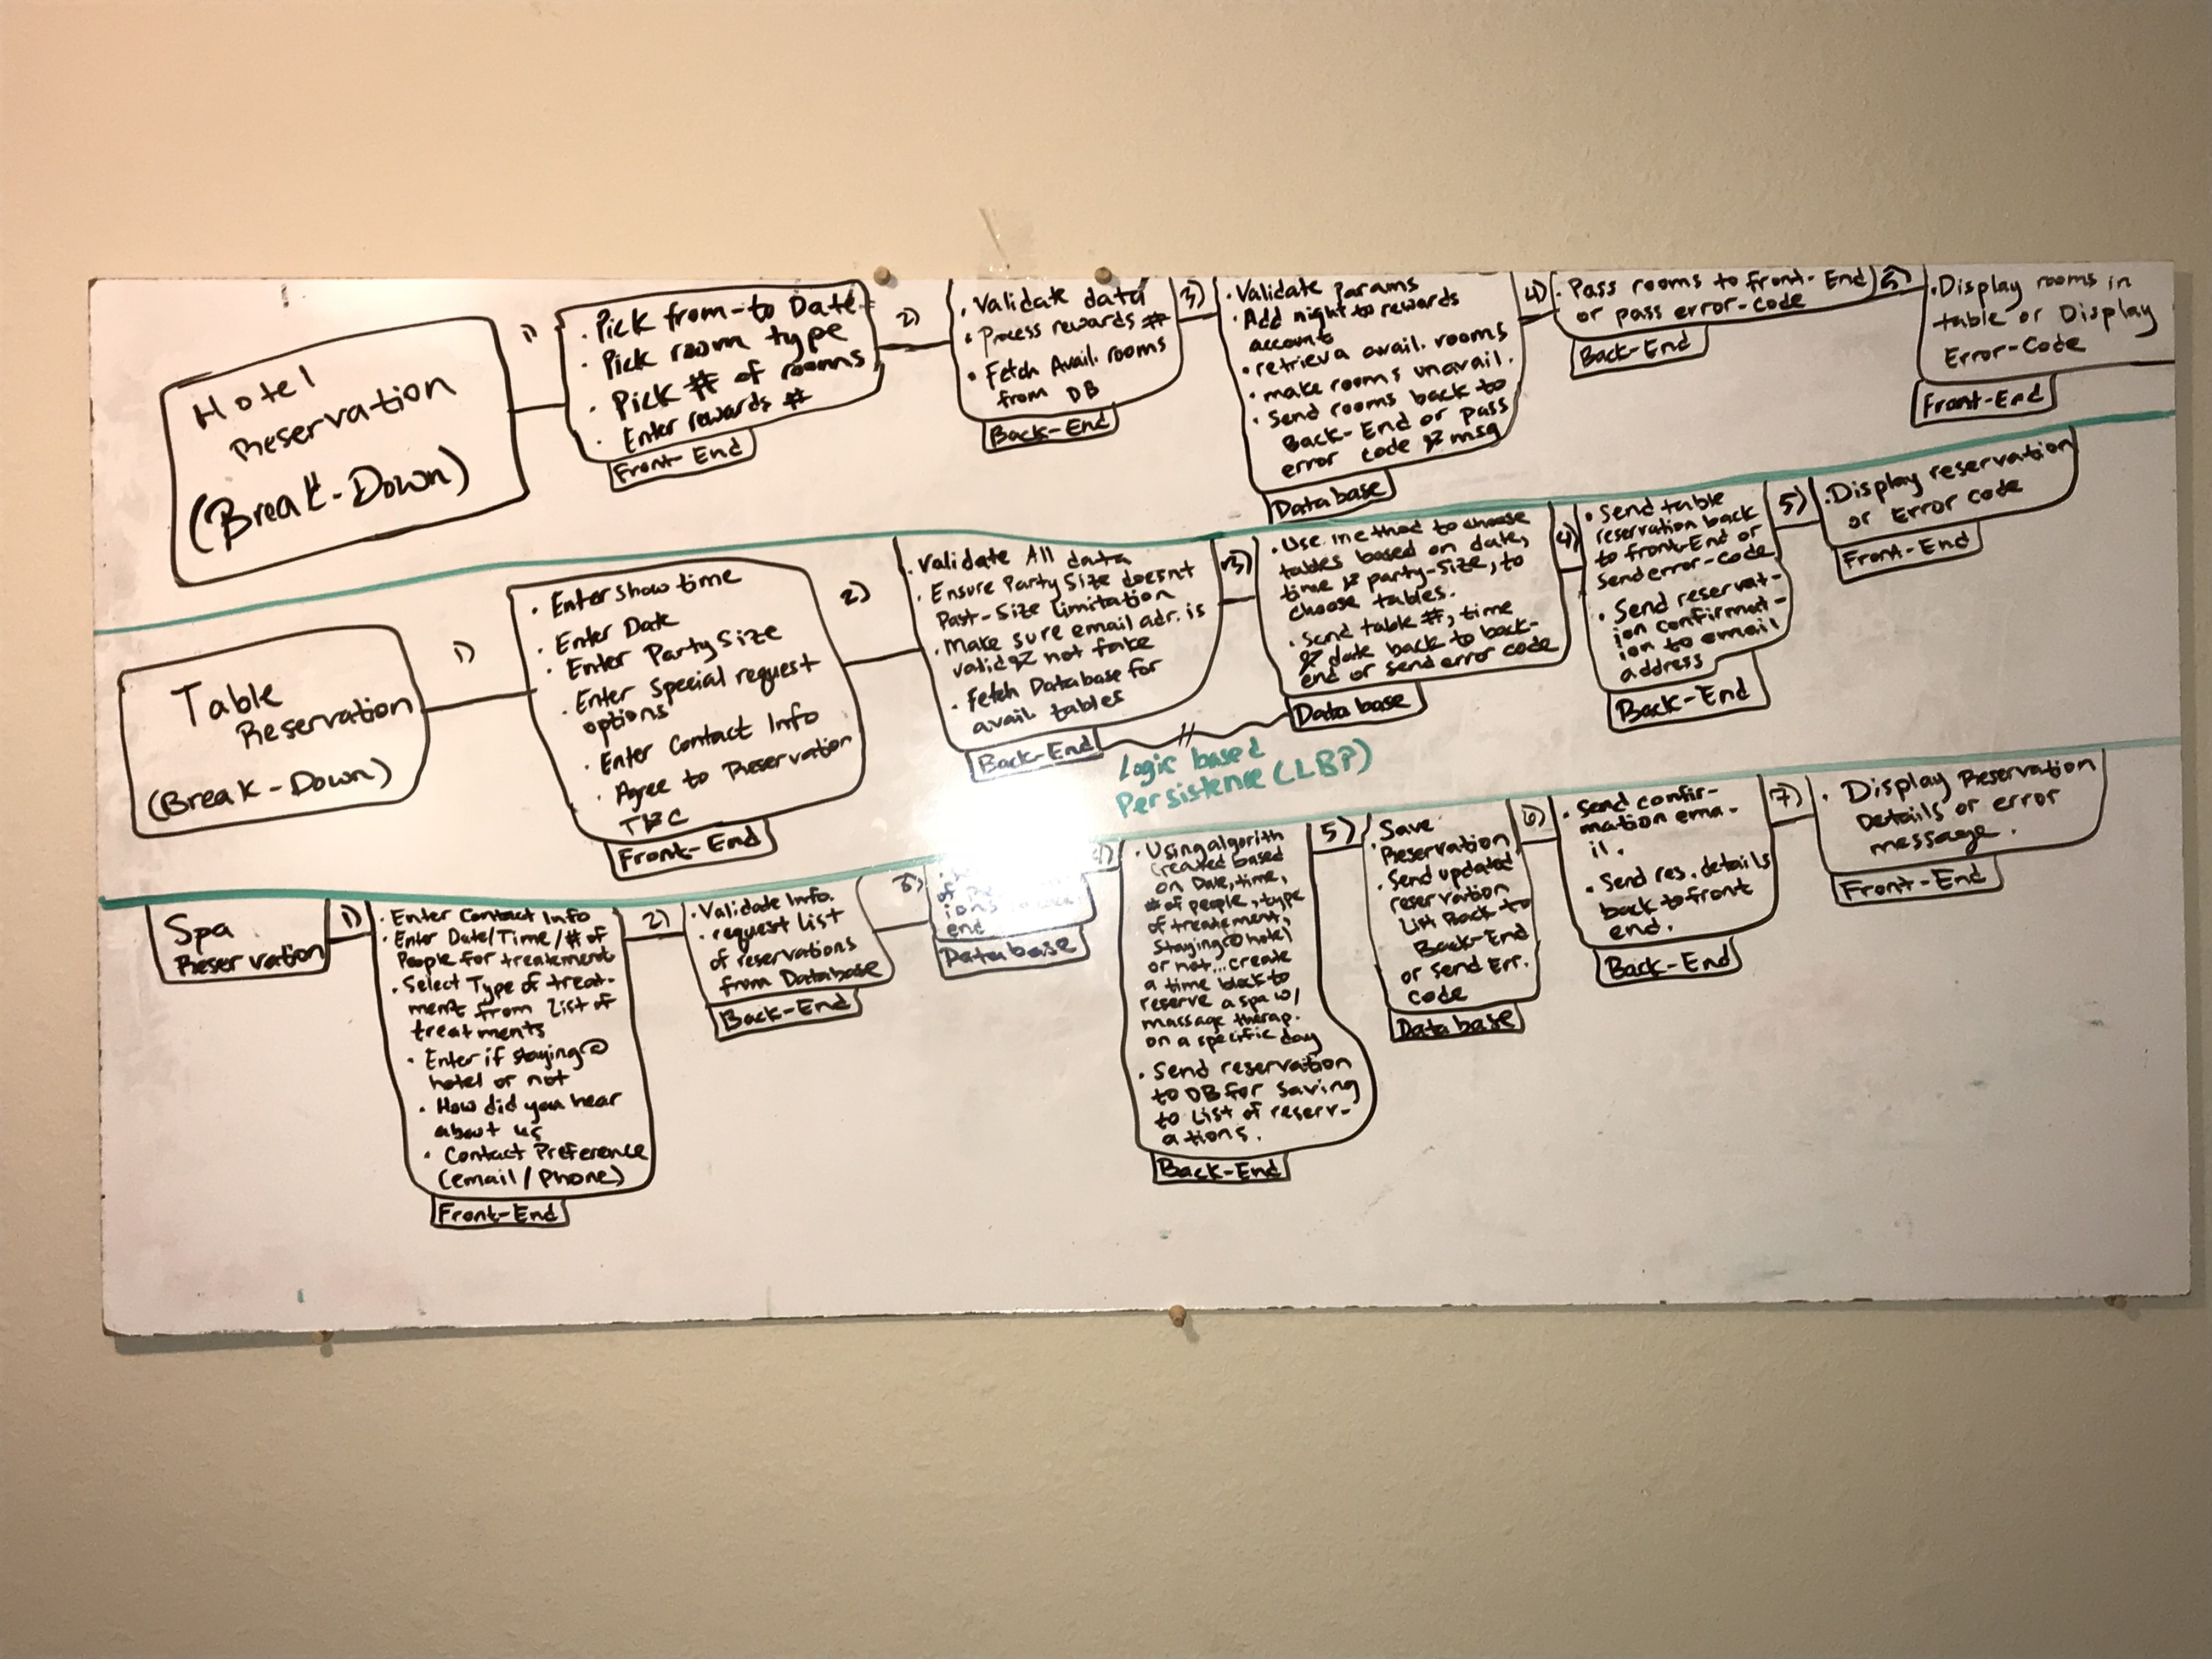 Hotel
Reservation
(Break-Down)
1)
· Pick from-to Date
· Pick room type
· Pick # of rooms
· Enter rewards #
Front-End
2)
· Validate data
· Process rewards #
· Fetch Avail. rooms
from DB
Back-End
3)
· Validate params
· Add night to rewards
account
· retrieva avail. rooms
· make rooms unavail.
· Send rooms back to
Back-End or pass
error code & msg
Database
4)
· Pass rooms to front-End
or pass error-code
Back-End
5)
· Display rooms in
table or Display
Error-Code
Front-End
Table
Reservation
(Break-Down)
1)
· Enter show time
· Enter Date
· Enter Party Size
· Enter Special request
options
· Enter Contact Info
· Agree to Reservation
T&C
Front-End
2)
· Validate All data
· Ensure Party Size doesnt
Past-Size limitation
· Make sure email adr. is
valid & not fake
· Fetch Database for
avail tables
Back-End
3)
· Use method to choose
tables based on date,
time & party-size, to
choose tables.
· Send table #, time
& date back to back-
end or send error code
Database
Logic based
Persistence (LBP)
4)
· Send table
reservation back
to front-End or
send error-code
· Send reservat-
ion confirmat-
ion to email
address
Back-End
5)
· Display reservation
or Error code
Front-End
Spa
Reservation
1)
· Enter Contact Info
· Enter Date/Time/# of
People for treatement
· Select Type of treat-
ment from List of
treatments
· Enter if staying @
hotel or not
· How did you hear
about us
· Contact Preference
(email/phone)
Front-End
2)
· Validate Info.
· request List
of reservations
from Database
Back-End
3)
end
Database
4)
· Using algorith
created based
on Date, time,
# of people, type
of treatement,
Staying @ hotel
or not... create
a time block to
reserve a spa w/
massage therap.
on a specific day
· Send reservation
to DB for saving
to List of reserv-
ations.
Back-End
5)
· Save
Reservation
· Send updated
reservation
List Back to
Back-End
or send Err.
code
Database
6)
· Send confir-
mation ema-
il.
· Send res. details
back to front
end.
Back-End
7)
· Display Reservation
Details or error
message.
Front-End